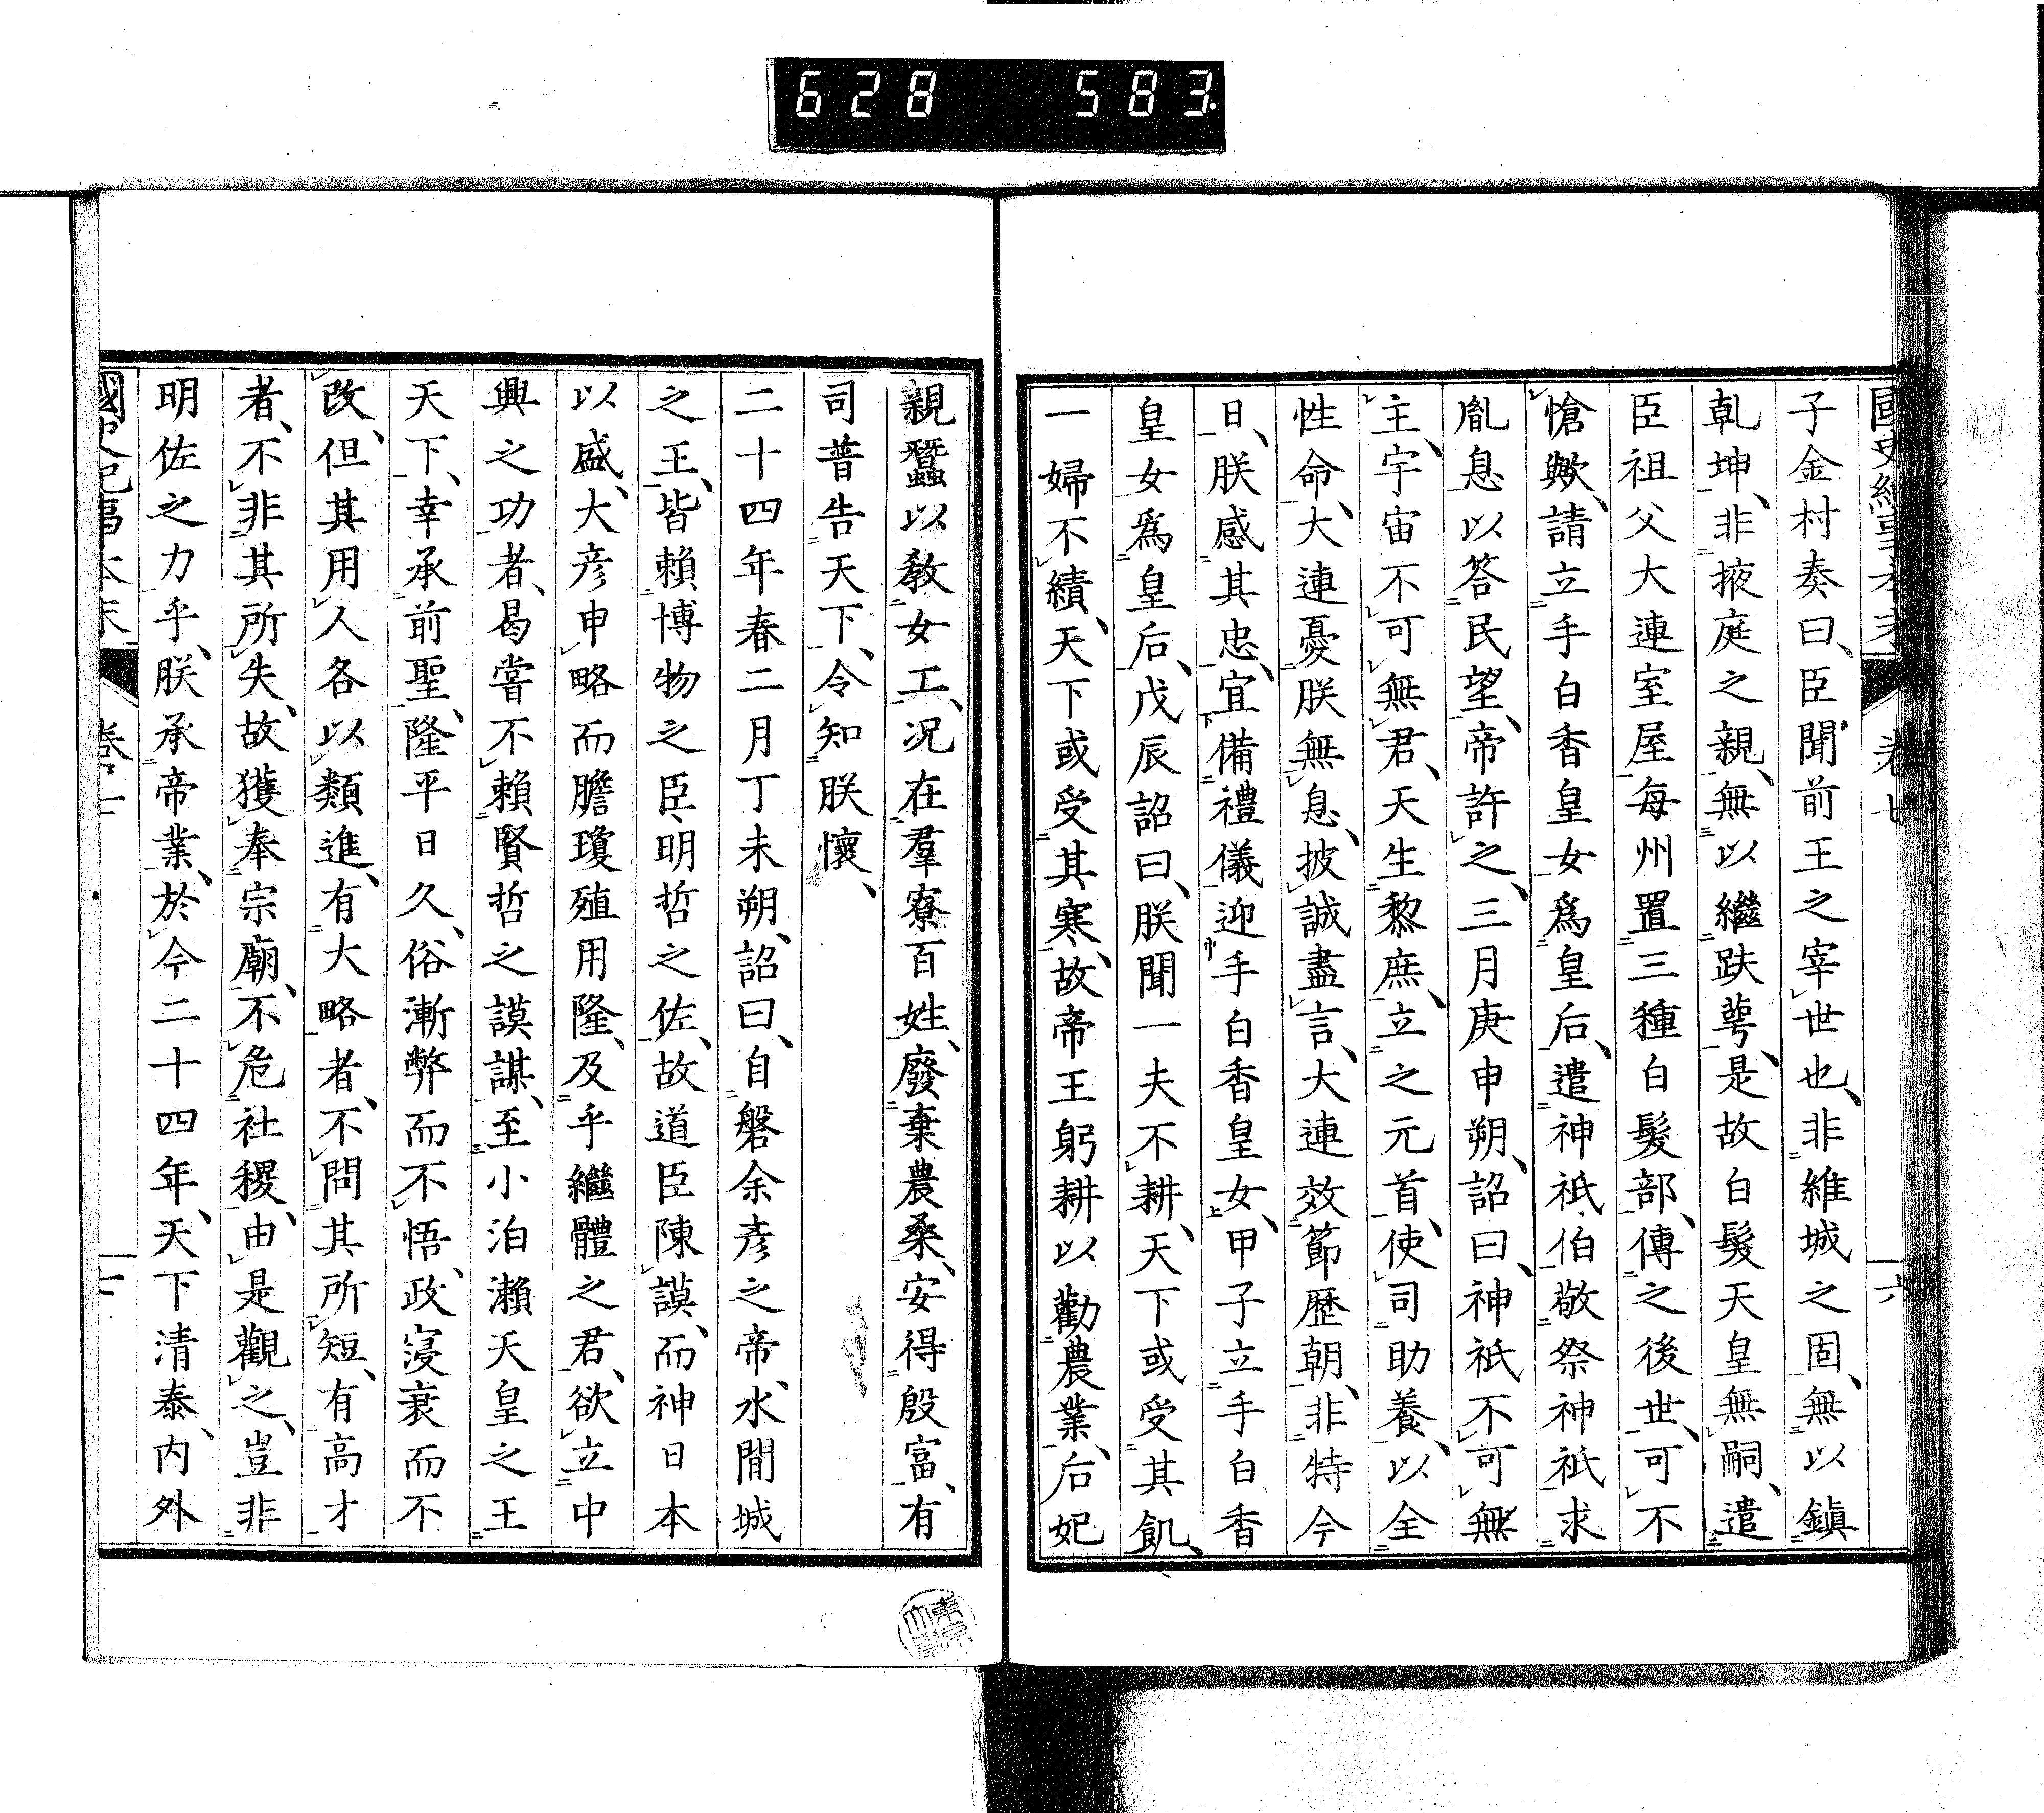 628 583
國史紀事本末 卷七 六
子金村奏曰、臣聞前王之宰世也、非維城之固、無以鎭
乹坤、非掖庭之親、無以繼趺萼、是故白髮天皇無嗣、遣
臣祖父大連室屋每州置三種白髮部、傳之後世、可不
愴歟、請立手白香皇女爲皇后、遣神祇伯敬祭神祇求
胤息以答民望、帝許之、三月庚申朔、詔曰、神祇不可無
主、宇宙不可無君、天生黎庶、立之元首、使司助養、以全
性命、大連憂朕無息、披誠盡言、大連效節歷朝、非特今
日、朕感其忠、宜備禮儀迎手白香皇女、甲子立手白香
皇女爲皇后、戊辰詔曰、朕聞一夫不耕、天下或受其飢、
一婦不績、天下或受其寒、故帝王躬耕以勸農業、后妃
親蠶以敎女工、況在羣寮百姓、廢棄農桑、安得殷富、有
司普告天下、令知朕懷、
二十四年春二月丁未朔、詔曰、自磐余彥之帝、水間城
之王、皆賴博物之臣、明哲之佐、故道臣陳謨、而神日本
以盛、大彥申略而膽瓊殖用隆、及乎繼體之君、欲立中
興之功者、曷嘗不賴賢哲之謨謀、至小泊瀨天皇之王
天下、幸承前聖、隆平日久、俗漸弊而不悟、政寖衰而不
改、但其用人各以類進、有大略者、不問其所短、有高才
者、不非其所失、故獲奉宗廟、不危社稷、由是觀之、豈非
明佐之力乎、朕承帝業、於今二十四年、天下清泰、內外
國史紀事本末 卷七 七